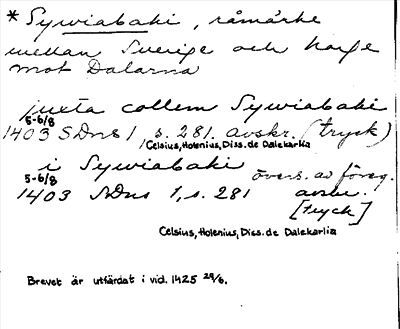 * Sywiabaki, råmärke
mellan Sverige och Norge
mot Dalarna
juxta collem Sywiabaki
5-6/8
1403 SDns 1 s. 281. avskr. (tryck)
/Celsius, Holenius, Diss. de Dalekarlia
i Sywiabaki
övers. av föreg.
5-6/8
1403 SDns 1, s. 281 avskr.
[tryck]
Celsius, Holenius, Diss. de Dalekarlia
Brevet är utfärdat i vid. 1425 29/6.